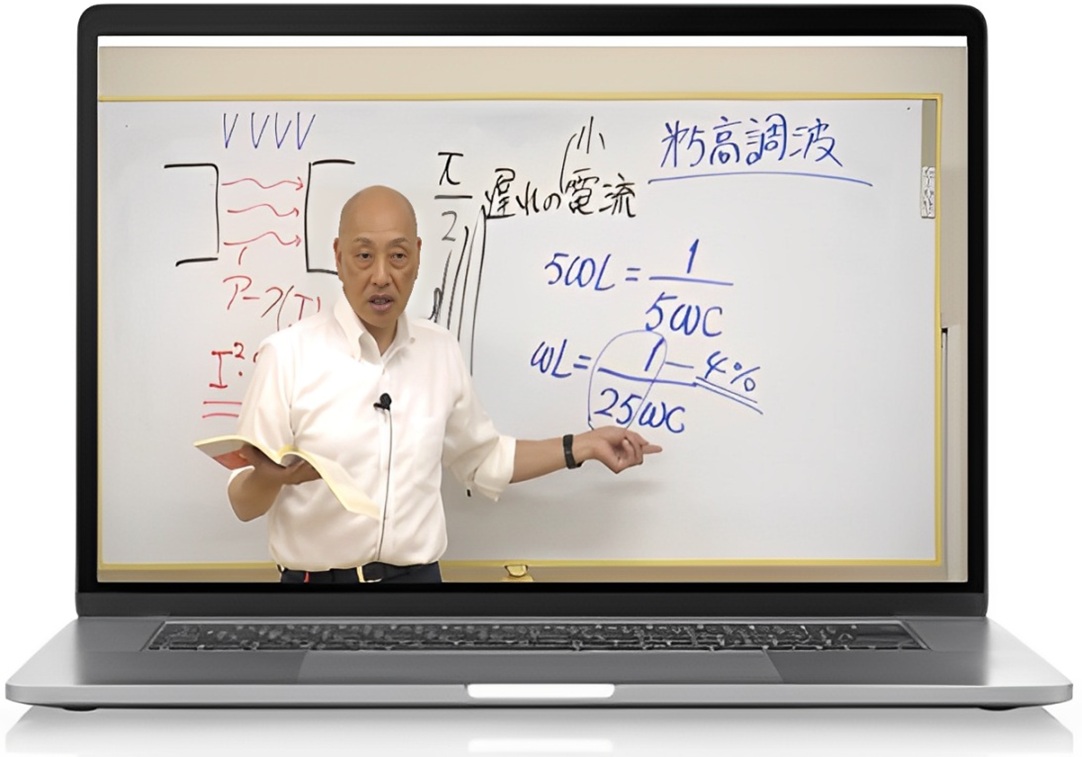 VVVV
アーク(I)
I²·
小
π/2 遅れの電流
第5高調波
5ωL = 1/5ωC
ωL = 1/25ωC — 4%